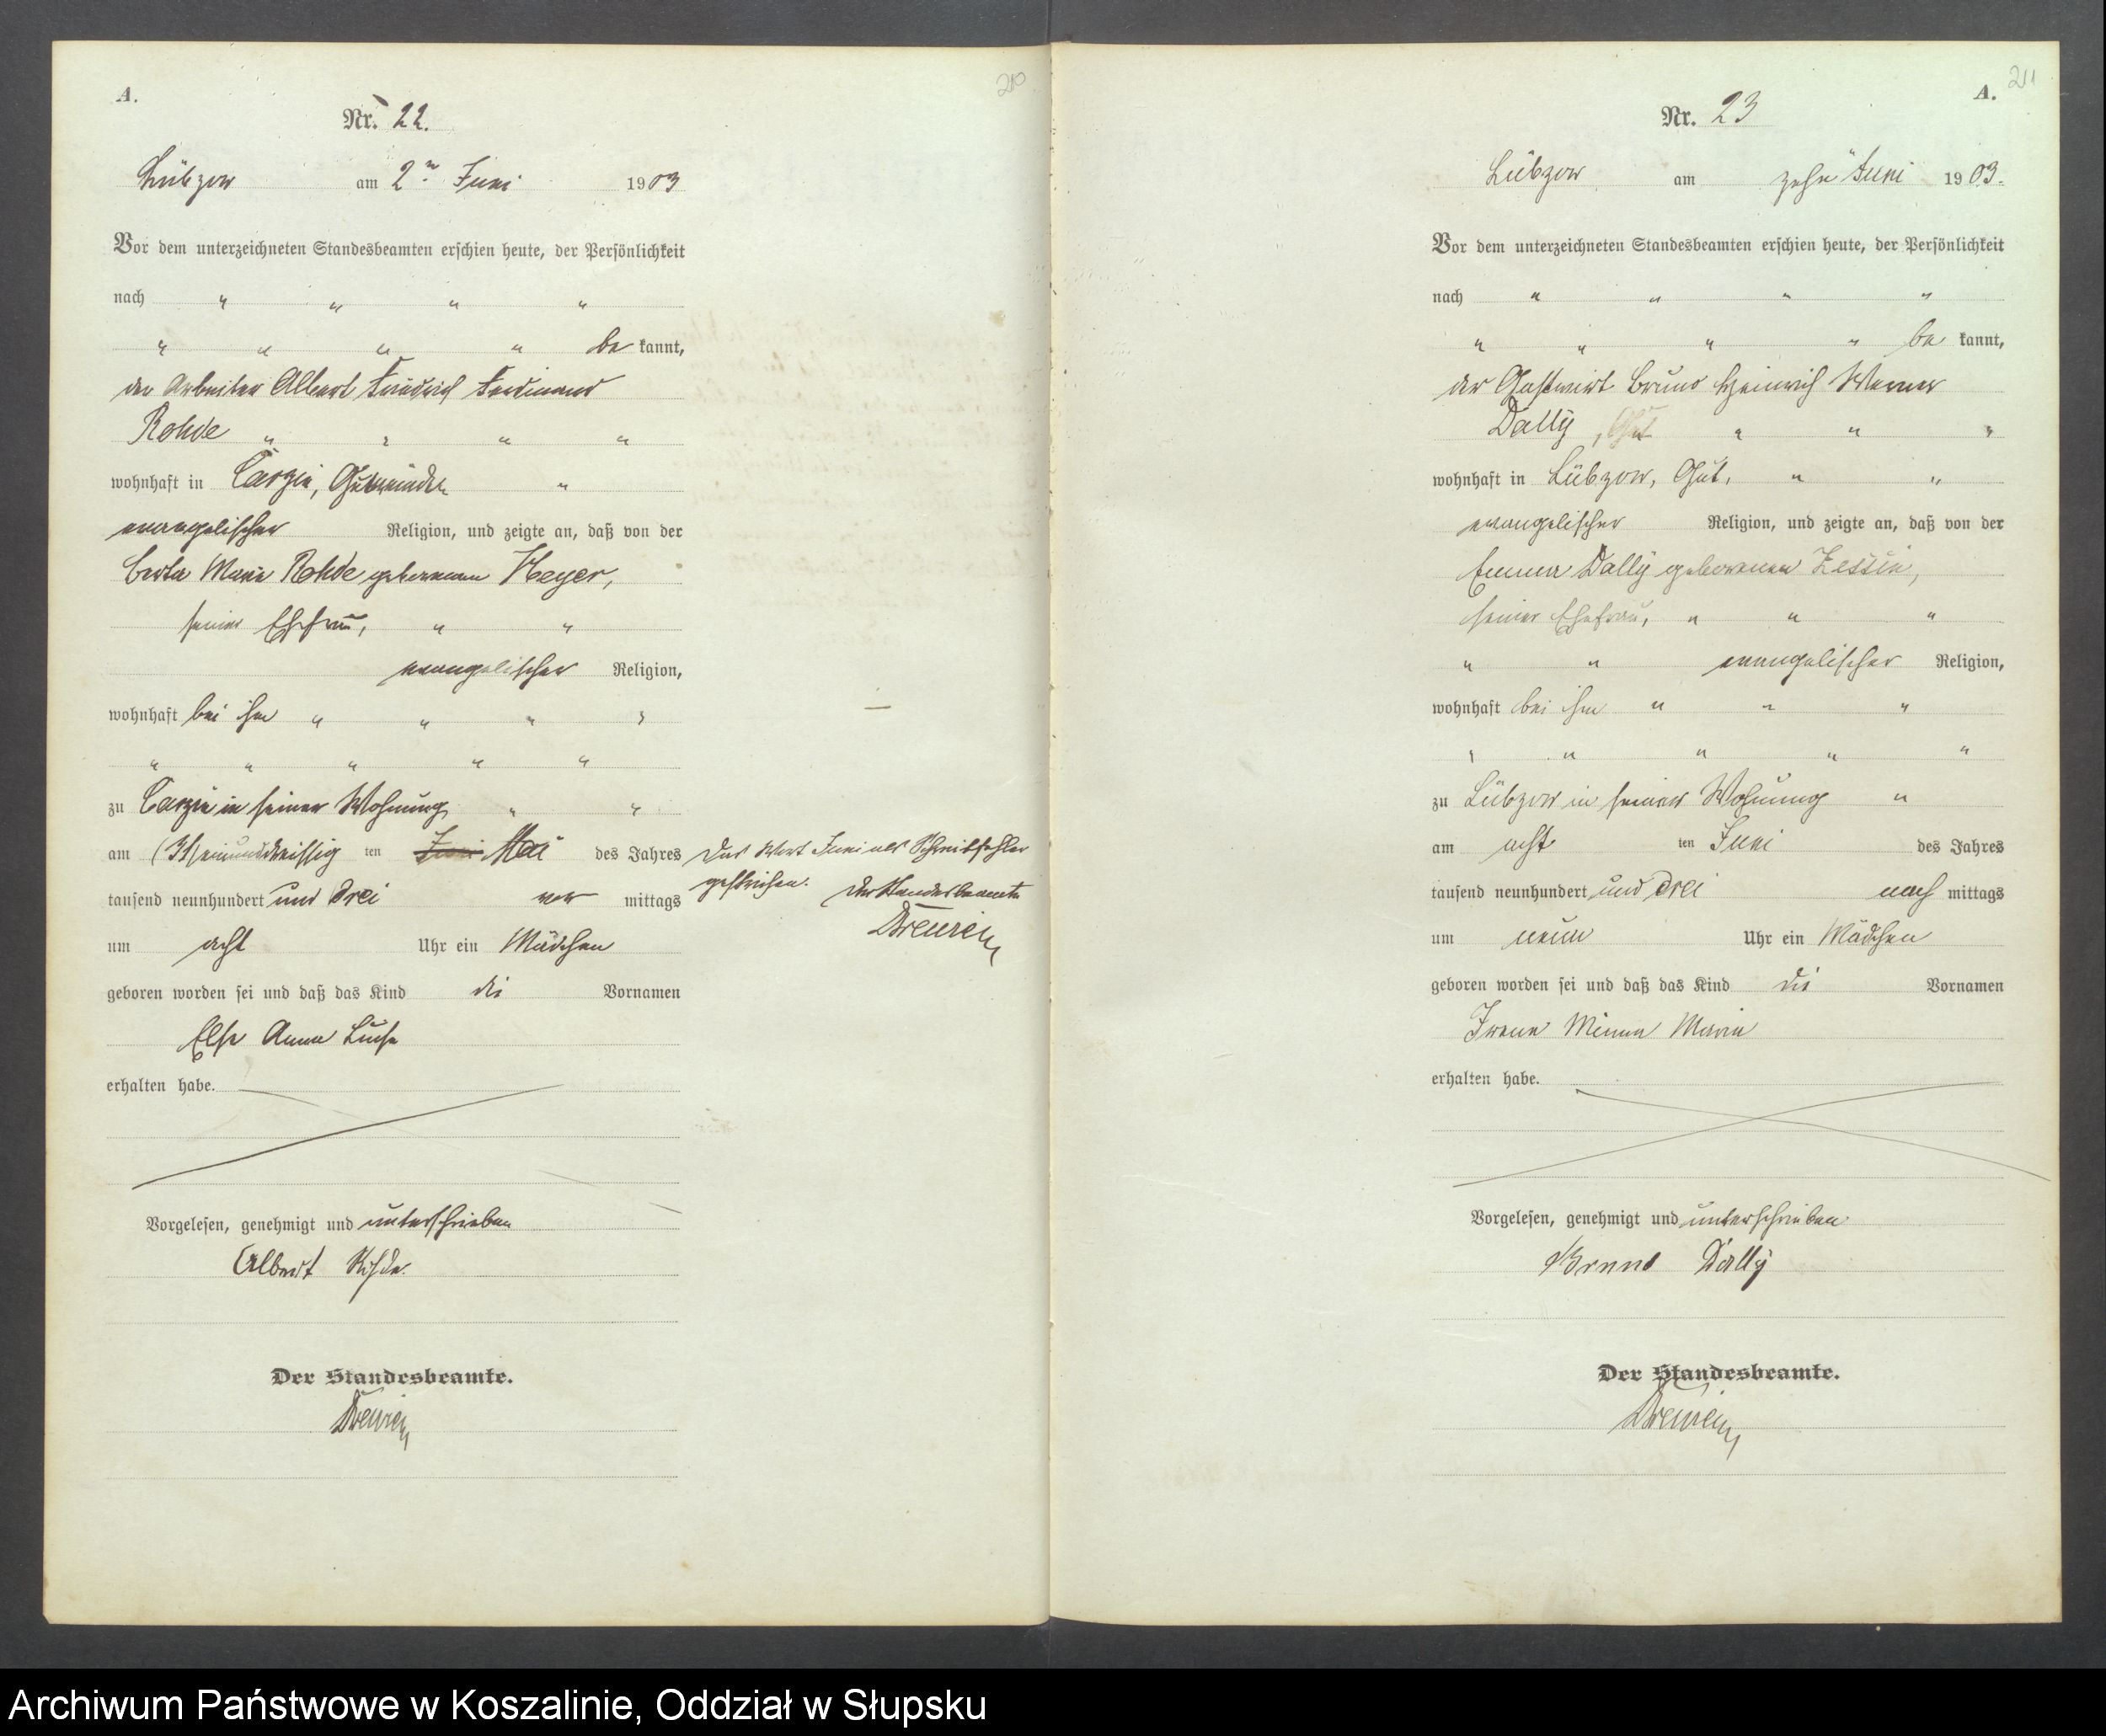 210
A.
Nr. 22.
Lübzow am 2ⁿ Juni 1903
Vor dem unterzeichneten Standesbeamten erschien heute, der Persönlichkeit
nach " " " "
" " " " be kannt,
der Arbeiter Albert Friedrich Ferdinand
Rohde " " " "
wohnhaft in Carzin, "
evangelischer Religion, und zeigte an, daß von der
Berta Marie Rohde geborenen Heyer,
seiner Ehefrau, " "
evangelischer Religion,
wohnhaft bei ihm " " " "
" " " " "
zu Carzin in seiner Wohnung " "
am (31) einunddreissig ten Juni Mai des Jahres
tausend neunhundert und drei vor mittags
um acht Uhr ein Mädchen
geboren worden sei und daß das Kind die Vornamen
Else Anna Luise
erhalten habe.
Das Wort Juni als Schreibfehler
gestrichen. Der Standesbeamte
Drewein
Vorgelesen, genehmigt und unterschrieben
Albert Rohde.
Der Standesbeamte.
Drewein
211
A.
Nr. 23
Lübzow am zehn Juni 1903.
Vor dem unterzeichneten Standesbeamten erschien heute, der Persönlichkeit
nach " " " "
" " " " be kannt,
der Gastwirt Bruno Heinrich Werner
Dally, Gut " " "
wohnhaft in Lübzow, Gut, " "
evangelischer Religion, und zeigte an, daß von der
Emma Dally geborenen Zessin,
seiner Ehefrau, " " "
" " evangelischer Religion,
wohnhaft bei ihm " " "
" " " " "
zu Lübzow in seiner Wohnung "
am acht ten Juni des Jahres
tausend neunhundert und drei nach mittags
um neun Uhr ein Mädchen
geboren worden sei und daß das Kind die Vornamen
Irene Minna Marie
erhalten habe.
Vorgelesen, genehmigt und unterschrieben
Bruno Dally
Der Standesbeamte.
Drewein
Archiwum Państwowe w Koszalinie, Oddział w Słupsku